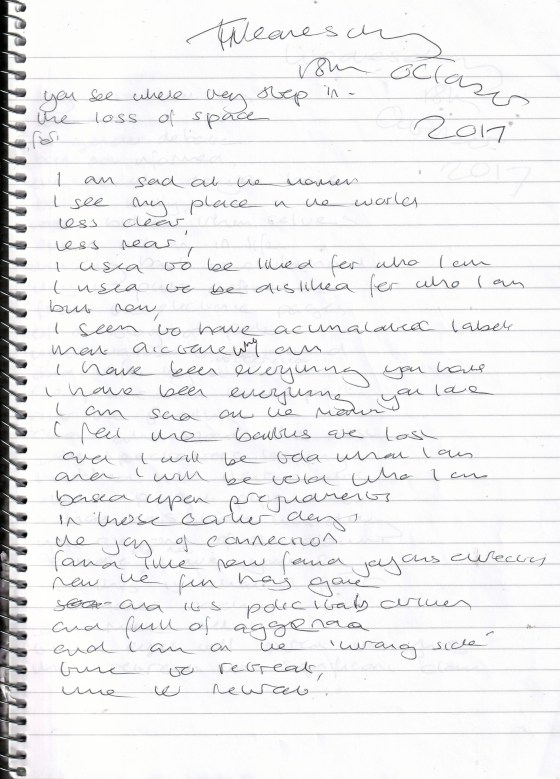 Wednesday
18th October
2017
you see where they step in -
the loss of space
for
I am sad at the moment
I see my place in the world
less clear,
less near,
I used to be liked for who I am
I used to be disliked for who I am
but now,
I seem to have acumalated labels
that dictate why I am
I have been everything you have
I have been everything you love
I am sad at the moment
I feel the battles are lost
and I will be told what I am
and I will be told who I am
based upon prejudments
in those earlier days,
the joy of connection
found like new found joyous directions
now the fun has gone
and its political driven
and full of aggenda
and I am on the 'wrong side'
time to retreat,
time to